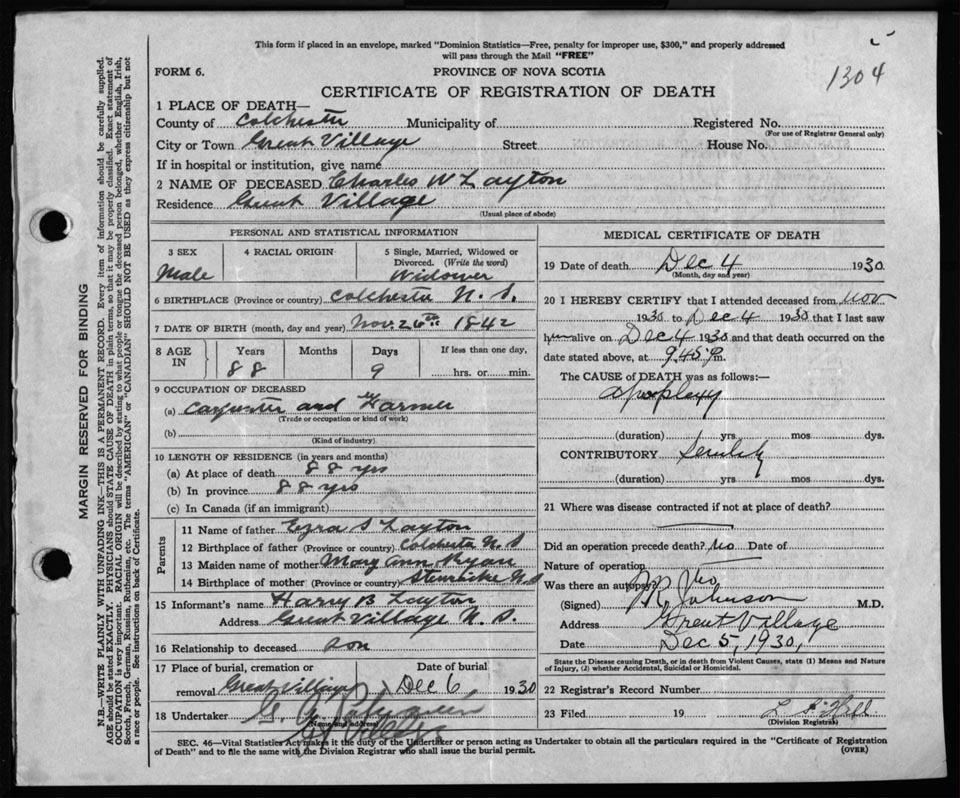 This form if placed in an envelope, marked "Dominion Statistics—Free, penalty for improper use, $300," and properly addressed
will pass through the Mail "FREE"
1304
FORM 6.
PROVINCE OF NOVA SCOTIA
CERTIFICATE OF REGISTRATION OF DEATH
1 PLACE OF DEATH—
County of Colchester Municipality of Registered No.
(For use of Registrar General only)
City or Town Great Village Street House No.
If in hospital or institution, give name
2 NAME OF DECEASED Charles W Layton
Residence Great Village
(Usual place of abode)
PERSONAL AND STATISTICAL INFORMATION
3 SEX 4 RACIAL ORIGIN 5 Single, Married, Widowed or
Divorced. (Write the word)
Male Widower
6 BIRTHPLACE (Province or country) Colchester N. S.
7 DATE OF BIRTH (month, day and year) Nov. 26th 1842
8 AGE IN Years Months Days If less than one day,
88 9 hrs. or min.
9 OCCUPATION OF DECEASED
(a) Carpenter and Farmer
(Trade or occupation or kind of work)
(b)
(Kind of industry)
10 LENGTH OF RESIDENCE (in years and months)
(a) At place of death 88 yrs
(b) In province 88 yrs
(c) In Canada (if an immigrant)
Parents
11 Name of father Ezra S Layton
12 Birthplace of father (Province or country) Colchester N. S
13 Maiden name of mother Mary Ann Ryan
14 Birthplace of mother (Province or country) N S
15 Informant's name Harry B Layton
Address Great Village N. S.
16 Relationship to deceased son
17 Place of burial, cremation or Date of burial
removal Great Village Dec 6, 1930
18 Undertaker
(Name and address)
Gt Village
MEDICAL CERTIFICATE OF DEATH
19 Date of death Dec 4 1930
(Month, day and year)
20 I HEREBY CERTIFY that I attended deceased from Nov
1930 to Dec 4 1930 that I last saw
h alive on Dec 4 1930 and that death occurred on the
date stated above, at 9.45 P m.
The CAUSE of DEATH was as follows:—
Apoplexy
(duration) yrs. mos dys.
CONTRIBUTORY Senility
(duration) yrs. mos. dys.
21 Where was disease contracted if not at place of death?
Did an operation precede death? No Date of
Nature of operation
Was there an autopsy? No
(Signed) Johnson M.D.
Address Great Village
Date Dec 5, 1930,
State the Disease causing Death, or in death from Violent Causes, state (1) Means and Nature
of Injury, (2) whether Accidental, Suicidal or Homicidal.
22 Registrar's Record Number
23 Filed 19
(Division Registrar)
SEC. 46—Vital Statistics Act makes it the duty of the Undertaker or person acting as Undertaker to obtain all the particulars required in the "Certificate of Registration
of Death" and to file the same with the Division Registrar who shall issue the burial permit. (OVER)
MARGIN RESERVED FOR BINDING
N.B.—WRITE PLAINLY WITH UNFADING INK—THIS IS A PERMANENT RECORD. Every item of information should be carefully supplied.
AGE should be stated EXACTLY. PHYSICIANS should STATE CAUSE OF DEATH in plain terms, so that it may be properly classified. Exact statement of
OCCUPATION is very important. RACIAL ORIGIN will be described by stating to what people or tongue the deceased person belonged, whether English, Irish,
Scotch, French, German, Russian, Ruthenian, etc. The terms "AMERICAN" or "CANADIAN" SHOULD NOT BE USED as they express citizenship but not
a race or people. See instructions on back of Certificate.